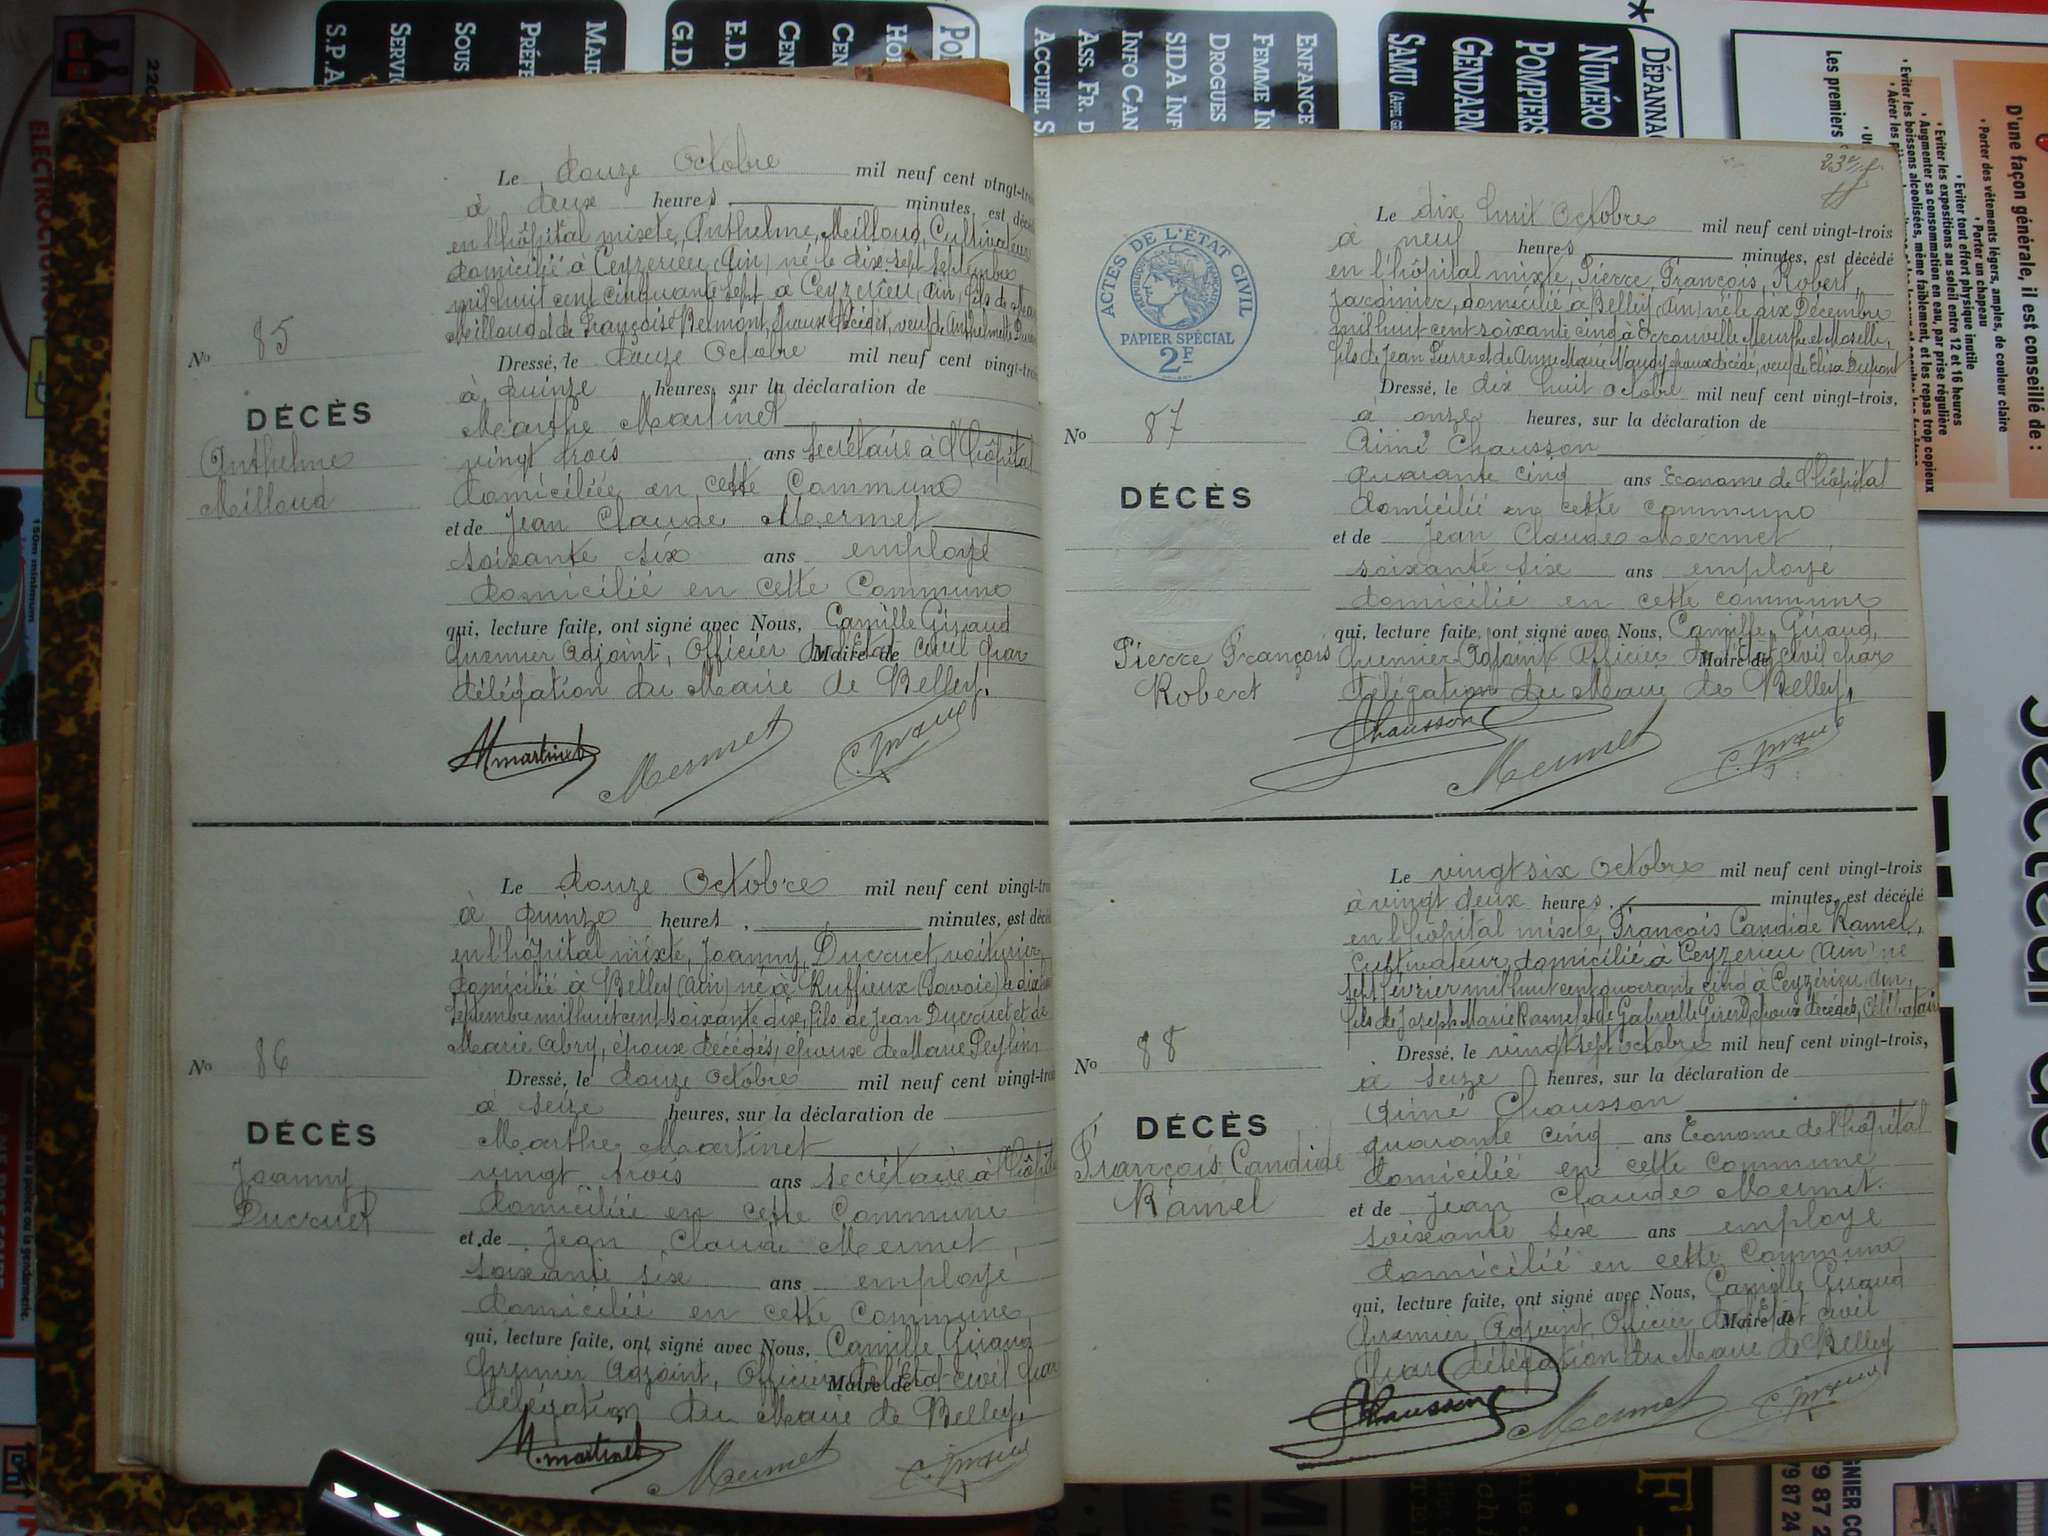 Le douze Octobre mil neuf cent vingt-trois
à deux heures minutes, est décédé
en l'hôpital mixte, Anthelme Meilloud, Cultivateur
domicilié à Ceyzerieu (Ain) né le dix sept Septembre
mil huit cent cinquante sept à Ceyzerieu, Ain, fils de Jean
Meilloud et de Françoise Belmont, époux décédés, veuf de Anthelmette
No 85
Dressé, le douze Octobre mil neuf cent vingt-trois
à quinze heures, sur la déclaration de
DÉCÈS
Anthelme
Meilloud
Marthe Martinet
vingt trois ans Secrétaire à l'hôpital
domiciliée en cette Commune
et de Jean Claude Mermet
soixante six ans employé
domicilié en cette Commune
qui, lecture faite, ont signé avec Nous, Camille Giraud
premier Adjoint, Officier de l'Etat civil par
Maire de
délégation du Maire de Belley.
M martinet Mermet C. Giraud
Le douze Octobre mil neuf cent vingt-trois
à quinze heures, minutes, est décédé
en l'hôpital mixte, Joanny Ducruet, voiturier,
domicilié à Belley (Ain) né à Ruffieux (Savoie) le
Septembre mil huit cent soixante dix, fils de Jean Ducruet et de
Marie Abry, époux décédés, époux de Marie Peylin
No 86
Dressé, le douze Octobre mil neuf cent vingt-trois
à seize heures, sur la déclaration de
DÉCÈS
Joanny
Ducruet
Marthe Martinet
vingt trois ans secrétaire à l'hôpital
domiciliée en cette Commune
et de Jean Claude Mermet,
soixante six ans employé
domicilié en cette Commune,
qui, lecture faite, ont signé avec Nous, Camille Giraud
premier Adjoint, Officier de l'Etat civil par
Maire de
délégation du Maire de Belley.
M. martinet Mermet C. Giraud
ACTES DE L'ÉTAT CIVIL
PAPIER SPÉCIAL
2F
Le dix huit Octobre mil neuf cent vingt-trois
à neuf heures minutes, est décédé
en l'hôpital mixte, Pierre, François, Robert,
Jardinier, domicilié à Belley (Ain) né le dix Décembre
mil huit cent soixante cinq à Meurthe et Moselle,
fils de Jean Pierre et de Anne Marie époux décédés, veuf de Elisa Dupont
Dressé, le dix huit octobre mil neuf cent vingt-trois,
No 87
à onze heures, sur la déclaration de
Aimé Chausson
quarante cinq ans Econome de l'hôpital
DÉCÈS
domicilié en cette commune
et de Jean Claude Mermet,
soixante six ans employé
domicilié en cette commune
qui, lecture faite, ont signé avec Nous, Camille Giraud,
Pierre François
Robert
premier Adjoint Officier de l'Etat civil par
Maire de
délégation du Maire de Belley.
Chausson Mermet C. Giraud
Le vingt six Octobre mil neuf cent vingt-trois
à vingt deux heures, minutes, est décédé
en l'hôpital mixte, François Candide Ramel,
Cultivateur, domicilié à Ceyzerieu (Ain) né
sept février mil huit cent quarante cinq à Ceyzérieu Ain,
fils de Joseph Marie Ramel et de Gabrielle Girerd, époux décédés, Célibataire
Dressé, le vingt sept octobre mil neuf cent vingt-trois,
No 88
à seize heures, sur la déclaration de
Aimé Chausson
DÉCÈS
François Candide
Ramel
quarante cinq ans Econome de l'hôpital
domicilié en cette commune
et de Jean Claude Mermet.
soixante six ans employé
domicilié en cette Commune
qui, lecture faite, ont signé avec Nous, Camille Giraud
premier Adjoint, Officier de l'Etat civil
Maire de
par délégation du Maire de Belley
Chausson Mermet C. Giraud
DÉPANNAG
NUMÉRO
POMPIERS
GENDARM
SAMU
ENFANCE
FEMME IN
DROGUES
SIDA INF
INFO CAN
ASS. FR. D
ACCUEIL S.
D'une façon générale, il est conseillé de :
• Porter des vêtements légers, amples, de couleur claire
• Porter un chapeau
• Eviter tout effort physique inutile
• Eviter les expositions au soleil entre 12 et 16 heures
• Augmenter sa consommation en eau, par prise régulière
Les premiers